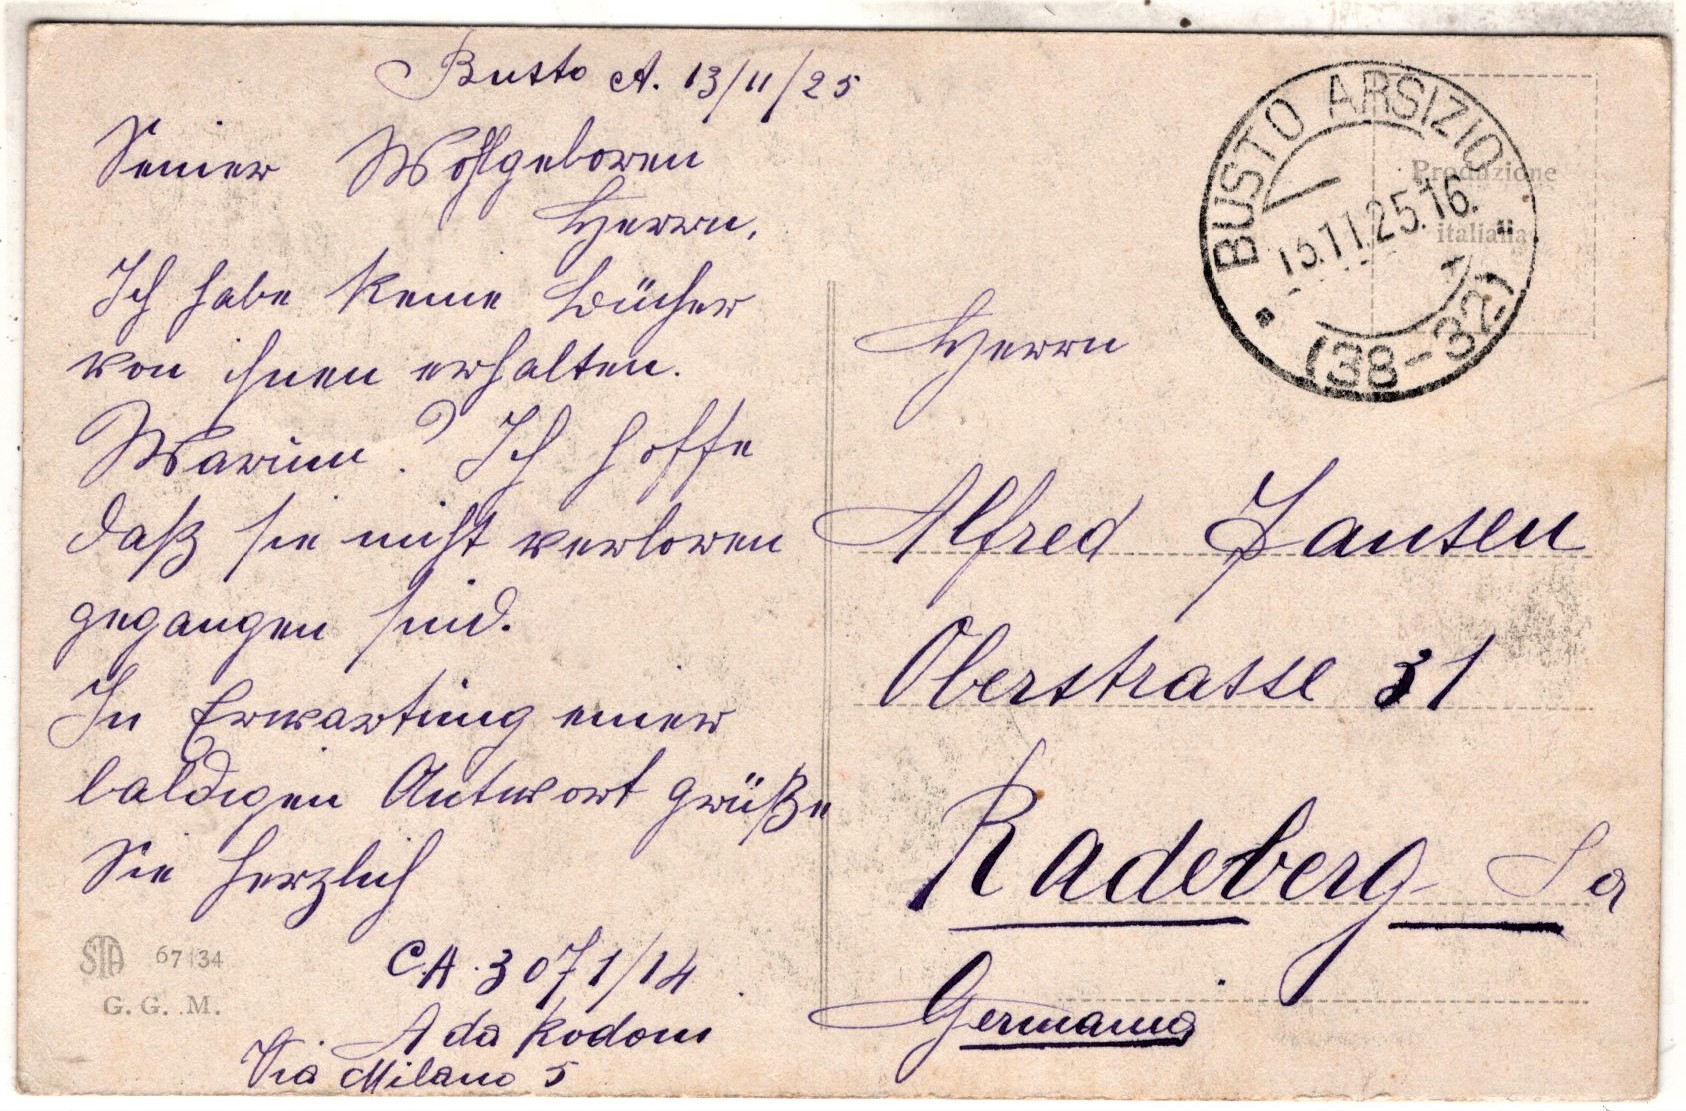 Busto A. 13/11/25
Seiner Wohlgeboren
Herrn,
Ich habe keine Bücher
von ihnen erhalten.
Warum? Ich hoffe
daß sie nicht verloren
gegangen sind.
In Erwartung einer
baldigen Antwort grüße
Sie herzlich
CA. 3071/14
Ada Rodoni
Via Milano 5
STA 67134
G. G. M.
BUSTO ARSIZIO
13.11.25.16.
(38-32)
Produzione
italiana
Herrn
Alfred Jansen
Oberstrasse 31
Radeberg Sa
Germania